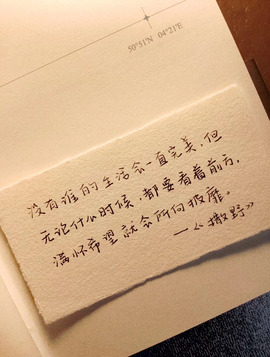 50°51'N 04°21'E
没有谁的生活会一直完美,但
无论什么时候,都要看着前方,
满怀希望就会所向披靡。
——《撒野》